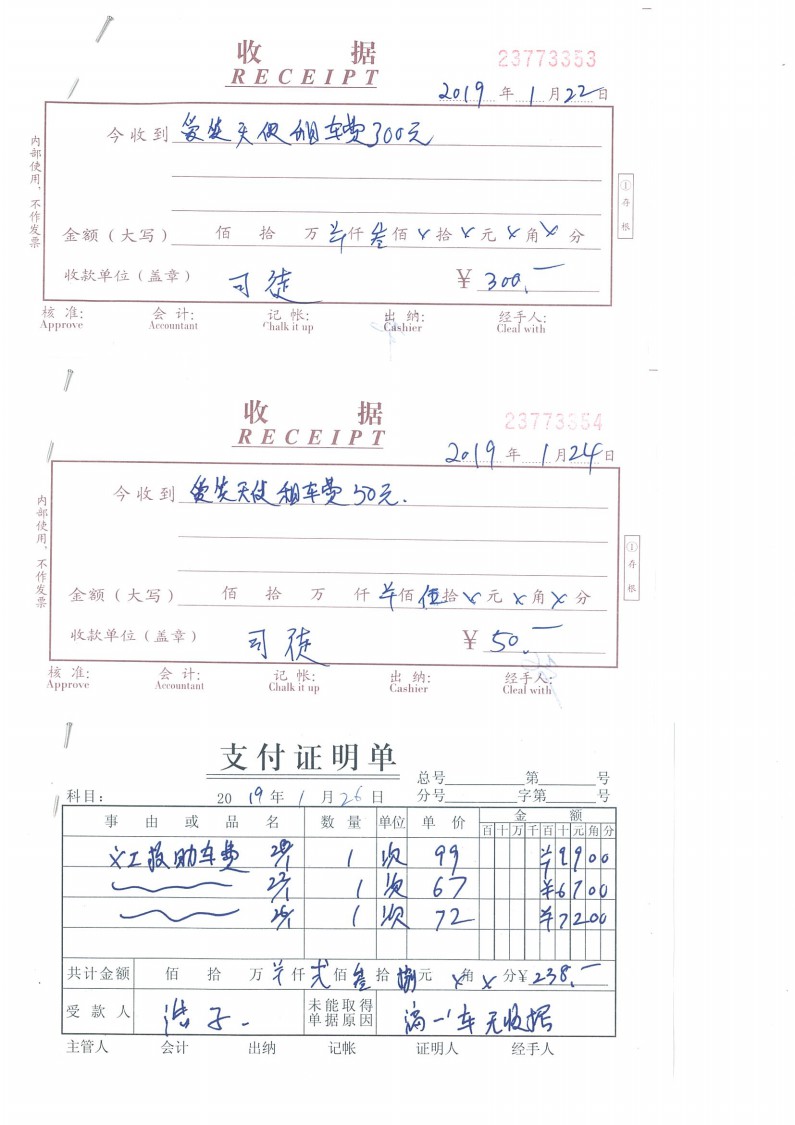 收 据
RECEIPT
23773353
2019 年 1 月 22 日
今收到 爱笑天使租车费300元
金额（大写） 佰 拾 万 ¥仟 叁佰 x拾 x元 x角 x分
收款单位（盖章） 司徒 ¥ 300.—
内部使用，不作发票
①存根
核 准： 会 计： 记 帐： 出 纳： 经手人：
Approve Accountant Chalk it up Cashier Cleal with
收 据
RECEIPT
23773354
2019 年 1 月 24 日
今收到 爱笑天使租车费50元.
金额（大写） 佰 拾 万 仟 ¥佰 伍拾 x元 x角 x分
收款单位（盖章） 司徒 ¥ 50.—
内部使用，不作发票
①存根
核 准： 会 计： 记 帐： 出 纳： 经手人：
Approve Accountant Chalk it up Cashier Cleal with
支付证明单
总号 第 号
科目： 2019 年 1 月 26 日 分号 字第 号
事 由 或 品 名 数 量 单位 单 价 金 额
百 十 万 千 百 十 元 角 分
义工报助车费 1 次 99 ¥9900
1 次 67 ¥6700
1 次 72 ¥7200
共计金额 佰 拾 万 ¥仟 贰佰 叁拾 捌元 x角 x分 ¥238.—
受 款 人 浩子. 未能取得单据原因 滴一丨车无收据
主管人 会计 出纳 记帐 证明人 经手人